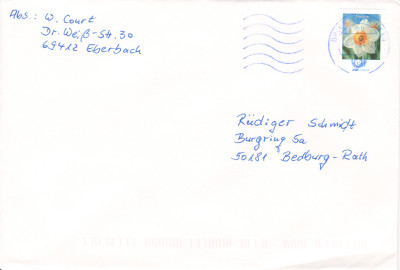 Abs.: W. Court
Dr. Weiß-Str. 30
69412 Eberbach
Rüdiger Schmidt
Burgring 5a
50181 Bedburg-Rath